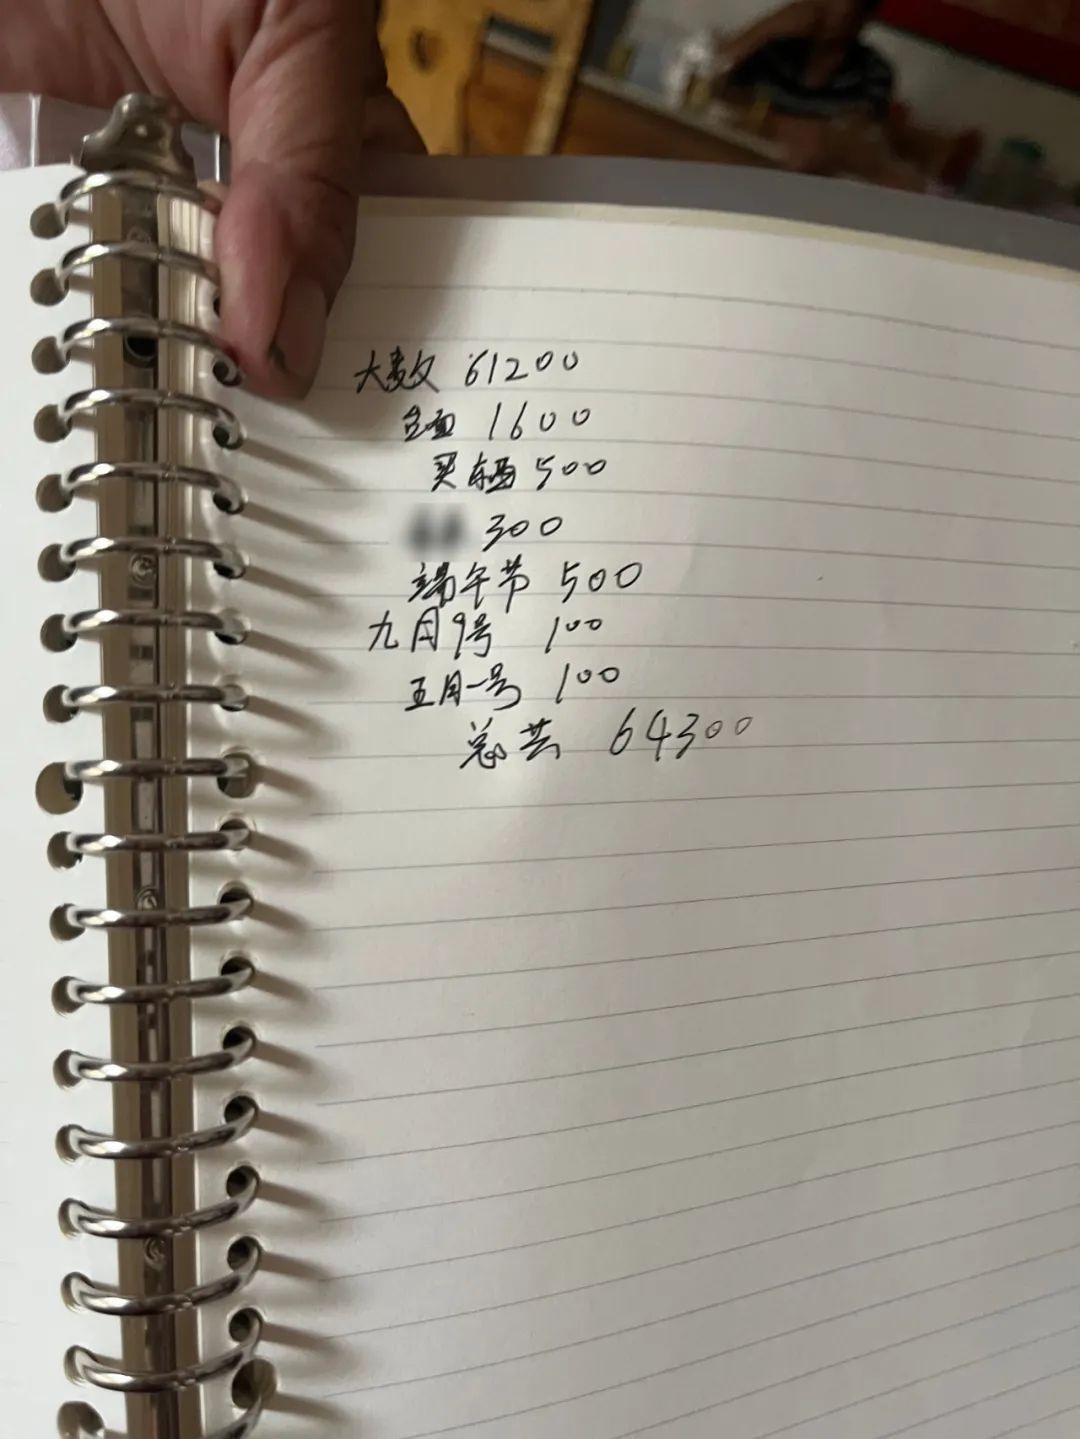 大数 61200
全面 1600
买东西 500
300
端午节 500
九月9号 100
五月一号 100
总共 64300